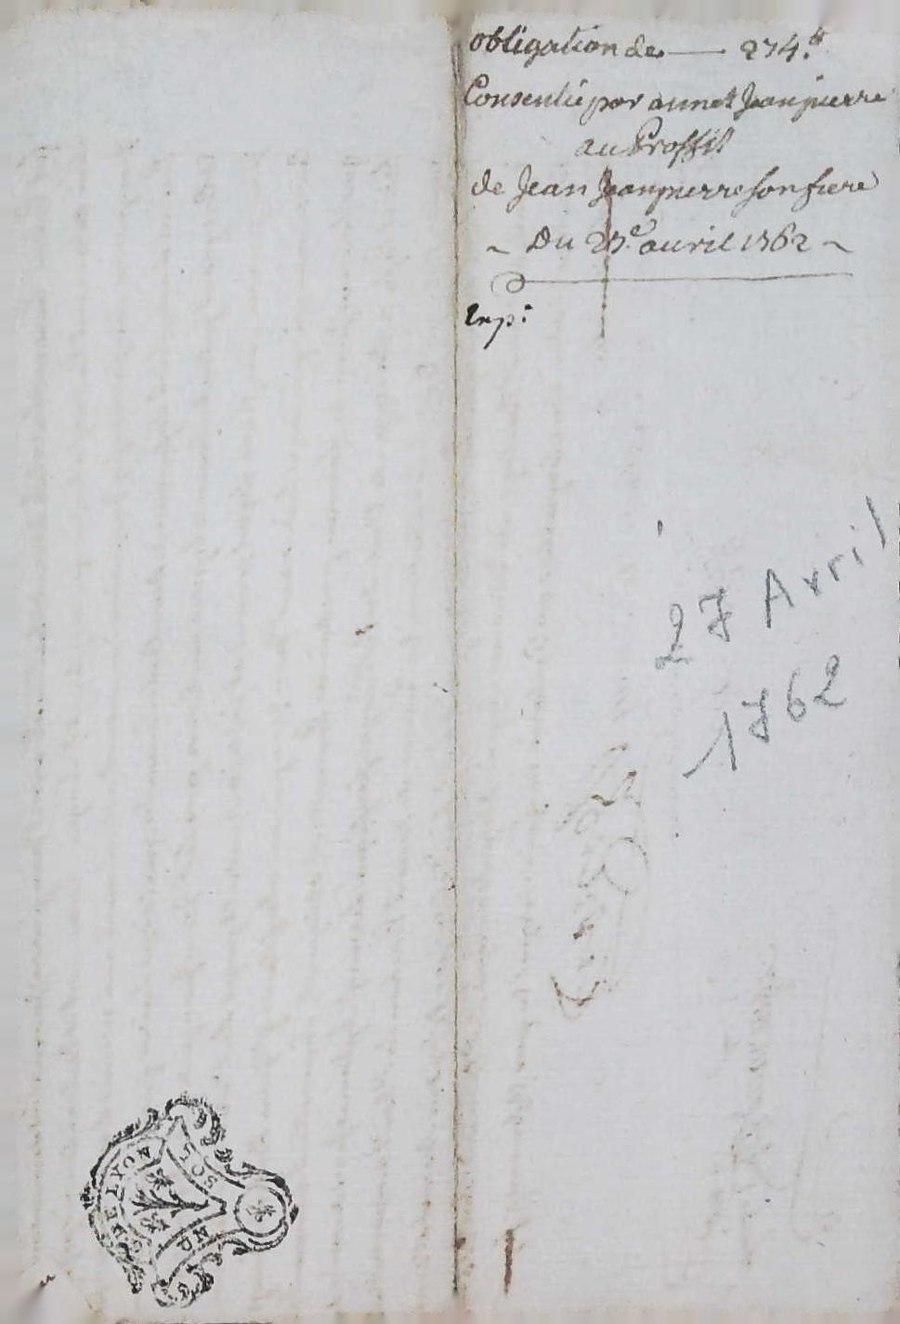 obligation de — 274.ᵗᵗ
Consentie par annet Jeanpierre
au Proffit
de Jean Jeanpierre son frere
~ Du 27ᵉ avril 1762 ~
Exp:
27 Avril
1762
SOLS